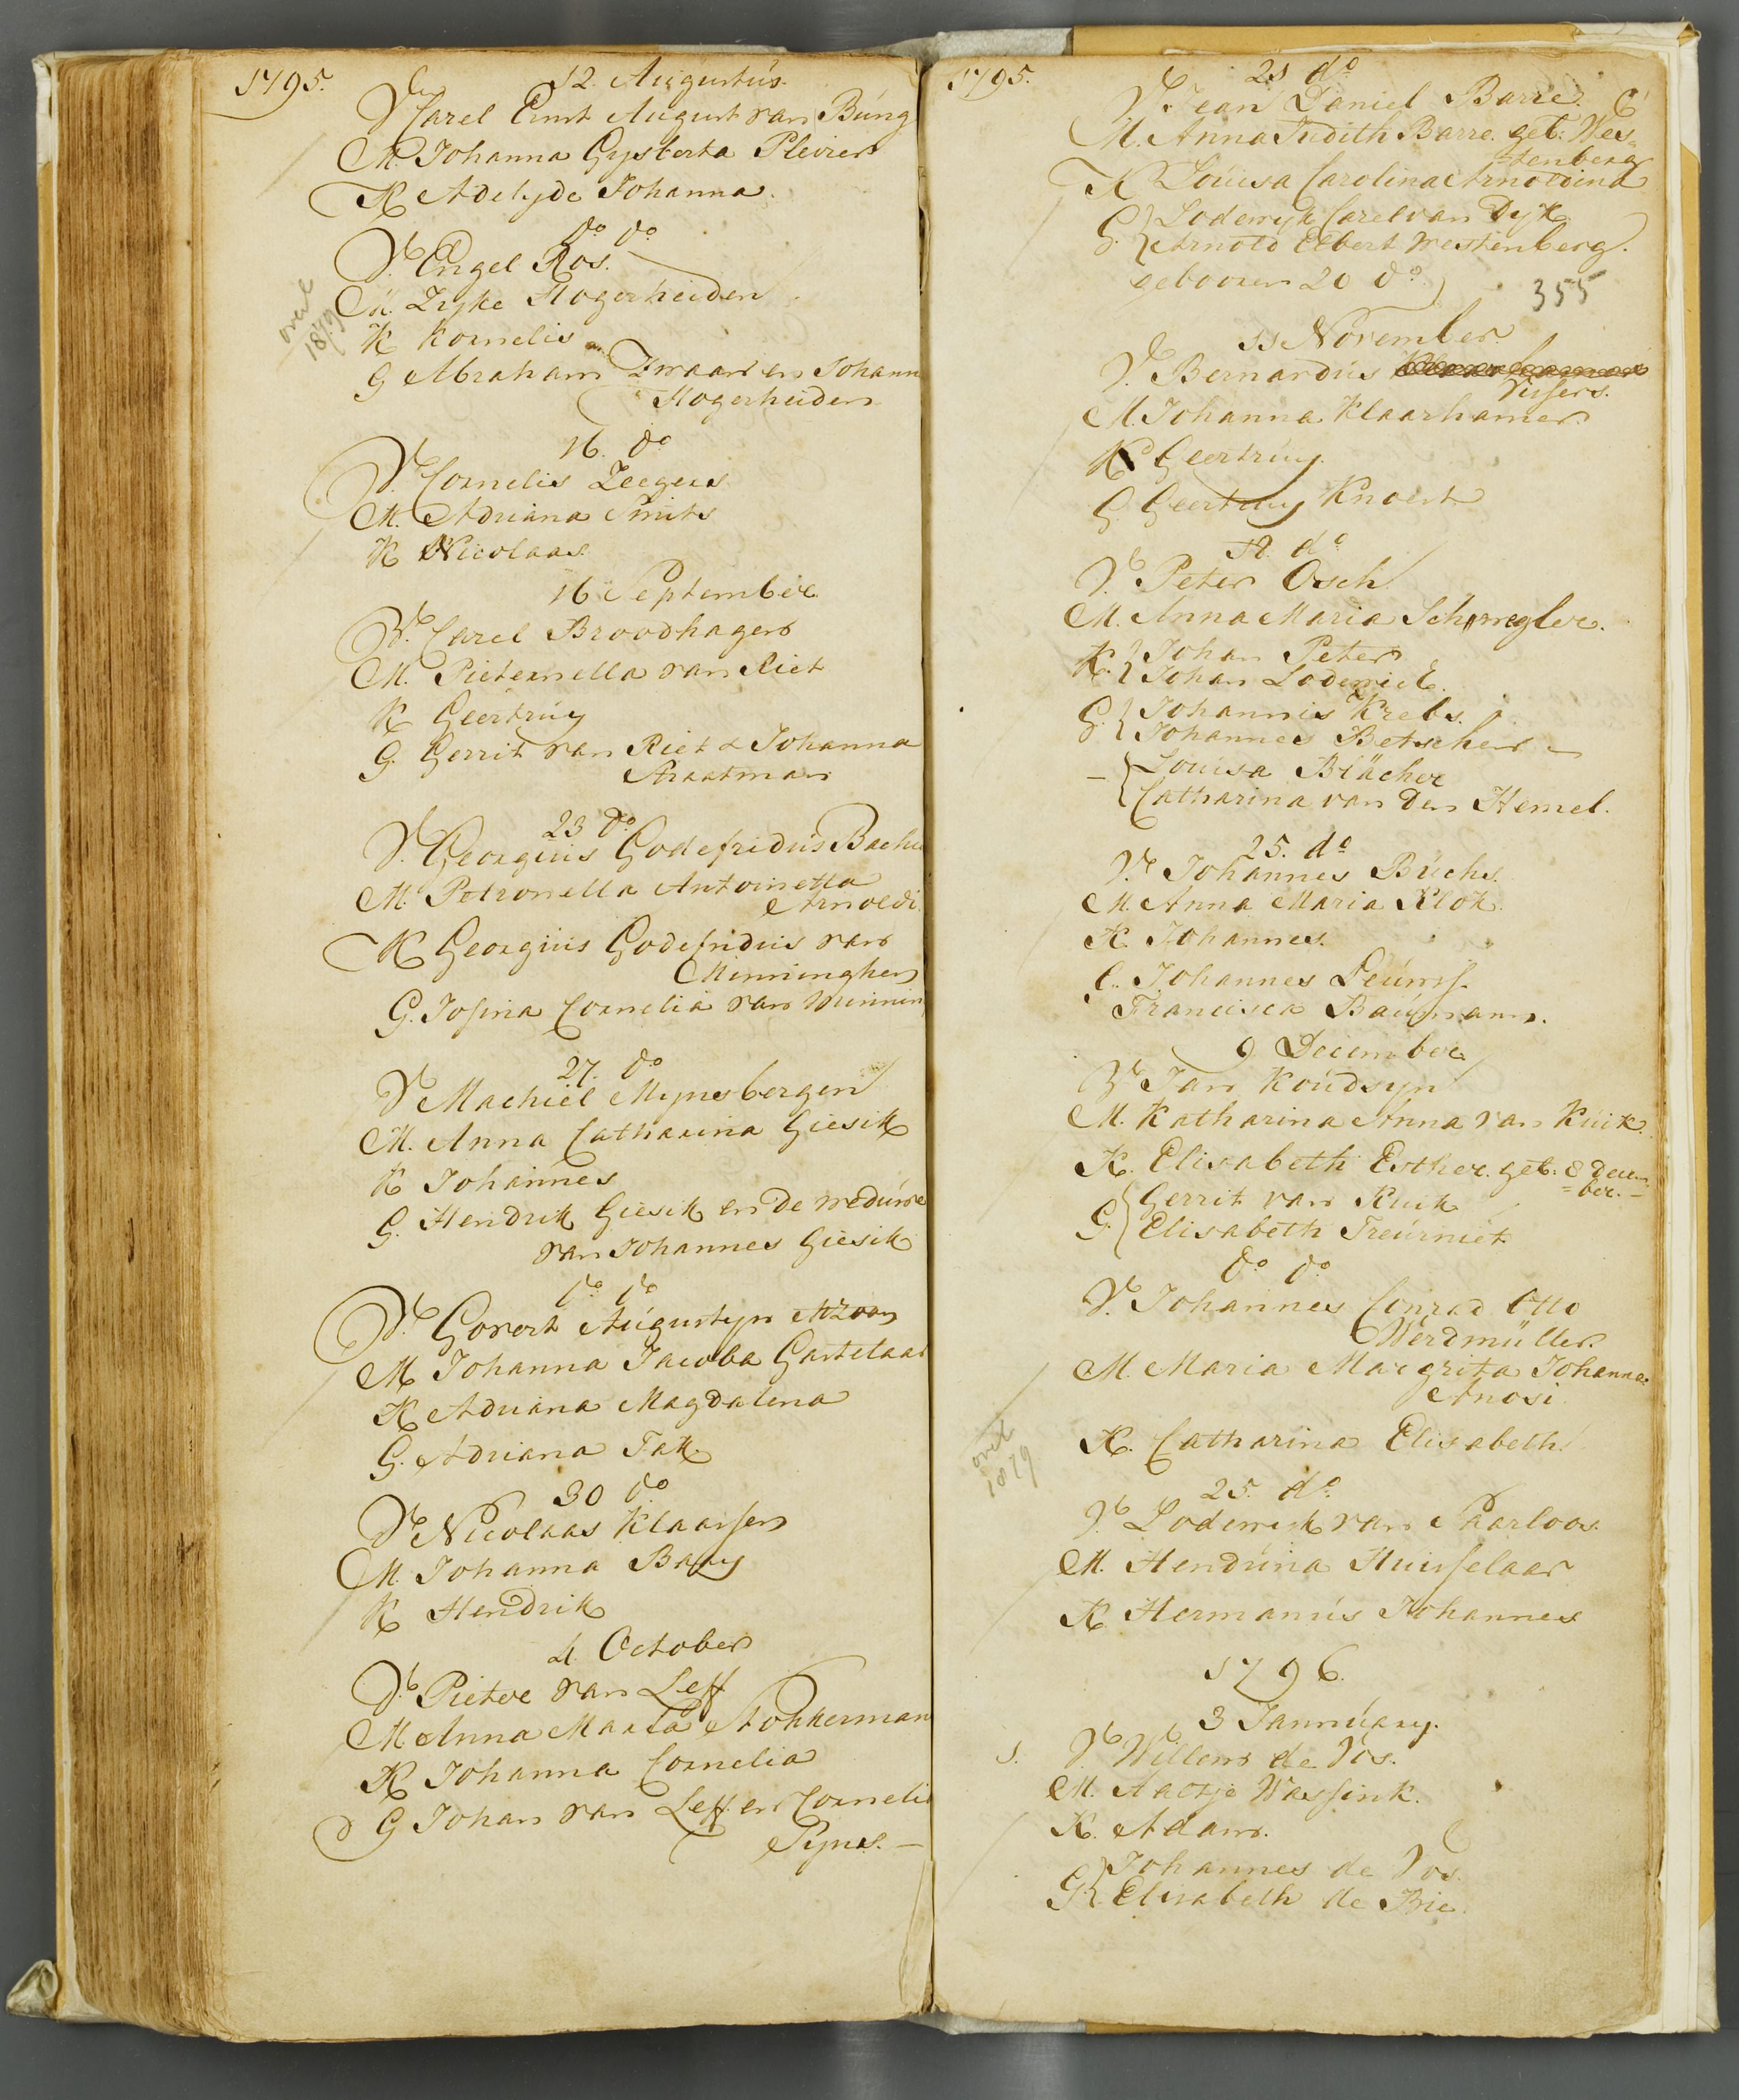 1795.
12. Augustus.
V. Carel Ernst August van Bung
M. Johanna Gysberta Plevier
K Adelyde Johanna.
do do
V. Engel Ros.
M. Zyke Hogerheiden
overl 1879
K Kornelis
G Abraham Zwaan en Johann
Hogerheiden
16. do
V. Cornelis Zeegers
M. Adriana Smits
K Nicolaas
16 September
V. Carel Broodhagen
M. Pieternella van Riet
K Geertruy
G. Gerrit van Riet & Johanna
Straatman
23 do
V. Georgius Godefridus Bache
M. Petronella Antoinetta
Arnoldi.
K Georgius Godefridus van
Minninghen
G. Josina Cornelia van Minnin
27. do
V. Machiel Mynsbergen
M. Anna Catharina Giesik
K Johannes
G. Hendrik Giesik en de weduwe
van Johannes Giesik
do do
V. Govert Augustyn
M Johanna Jacoba Gartelaar
K Adriana Magdalena
G. Adriana Tak
30 do
V. Nicolaas Klaassen
M. Johanna Bary
K Hendrik
4 October
V. Pieter van Leff
M. Anna Marta Stokkerman
K Johanna Cornelia
G Johan van Leff en Corneli
Pynas. —
1795.
21 do
V. Jean Daniel Barre.
M. Anna Judith Barre. geb: Wes=
tenberg
K Louisa Carolina Arnoldina
G. { Lodewyk Carel van Dyk
Arnold Elbert Westenberg.
gebooren 20 do
355
11 November
V. Bernardus
Vissers.
M. Johanna Klaarhamer
K Geertruy.
G. Geertruy Knoert
12. do
V. Peter Osch
M. Anna Maria Schwegler.
K. { Johan Peter
Johan Lodewick.
G. { Johannis Krebs.
Johannes Betscher
— { Louisa Blächer
Catharina van den Hemel.
25. do
V. Johannes Buchs.
M. Anna Maria Klok.
K. Johannes.
G. Johannes
Francisca Baumann.
9 December
V. Jan Koudsyn
M. Katharina Anna van Kuik.
K. Elisabeth Esther. geb: 8 Decem
=ber. —
G. { Gerrit van Kuik
Elisabeth Treurniet
do do
V. Johannes Conrad Otto
Werdmüller.
M. Maria Margrita Johanna
Anosi
overl 1879
K. Catharina Elisabeth.
25. do
V. Lodewik van Paarloos.
M. Hendrina Huisselaar
K Hermanus Johannes
1796.
3 Jannuary.
1. V. Willem de Vos.
M. Aaltje Wassink.
K. Adam.
G. { Johannes de Vos.
Elisabeth de Brie.